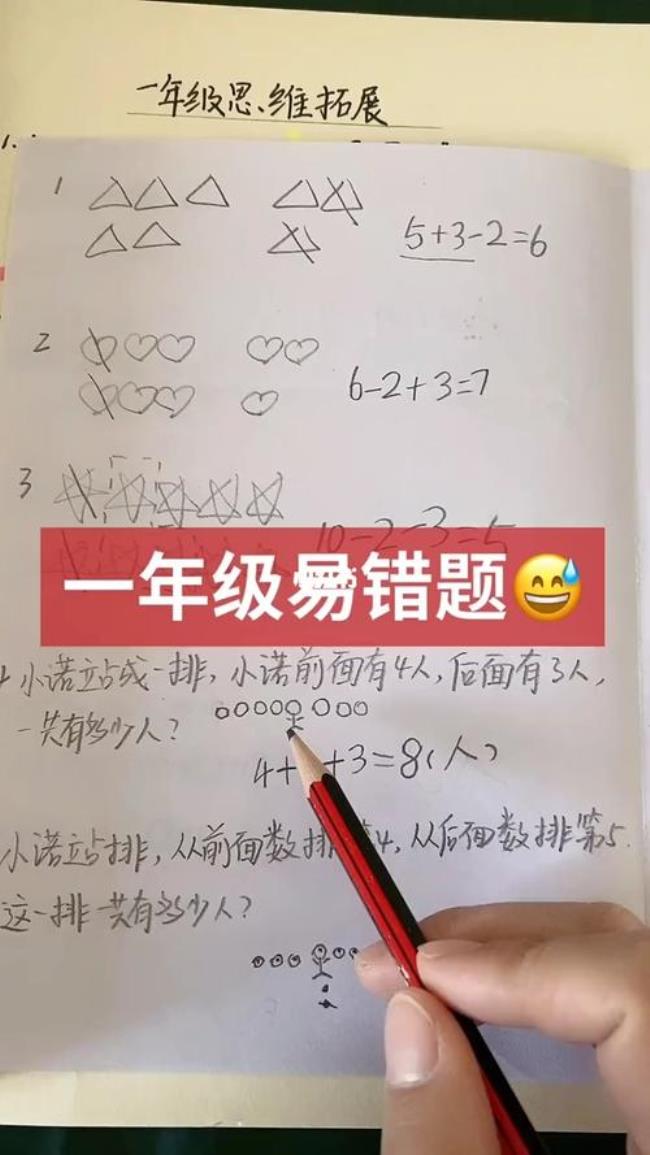 一年级思维拓展
1.
1
5+3-2=6
2
6-2+3=7
3
10-2-3=5
一年级易错题😅
小诺站成一排,小诺前面有4人,后面有3人,
一共有多少人?
4+ +3=8(人)
小诺站排,从前面数排 4,从后面数排第5.
这一排一共有多少人?